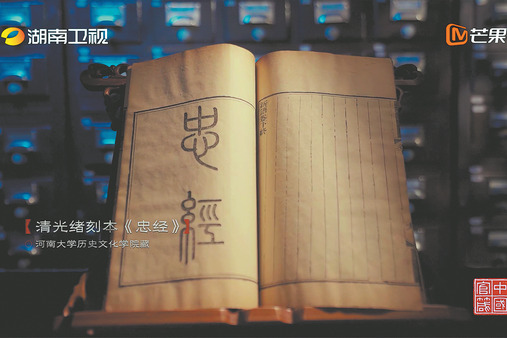 湖南卫视
芒果
忠
經
清光绪刻本《忠经》
河南大学历史文化学院藏
中國
官箴